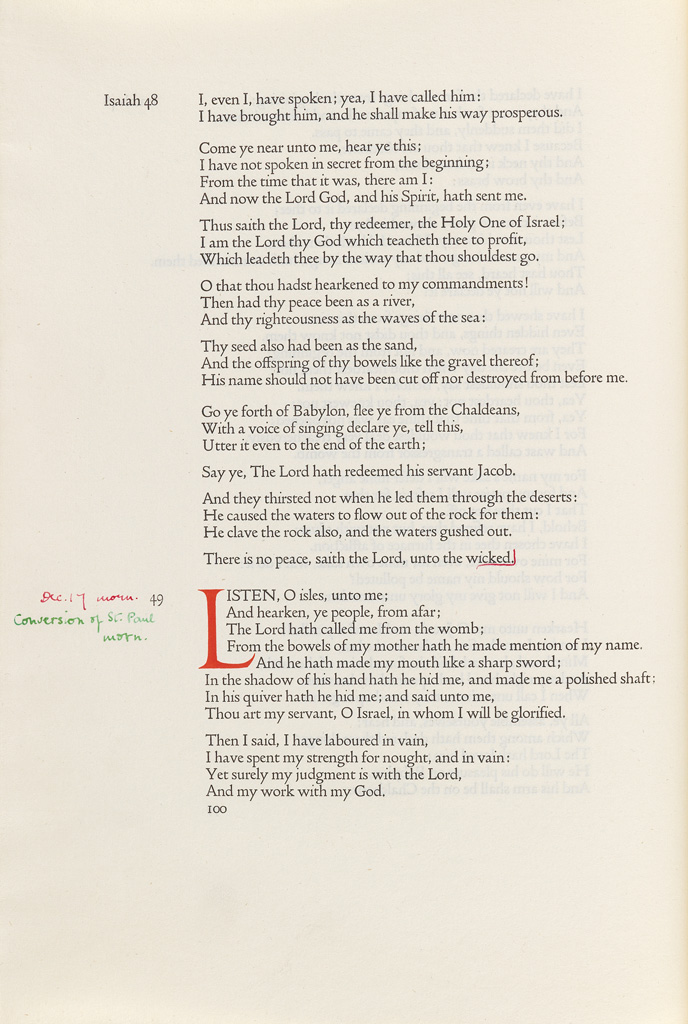 Isaiah 48
I, even I, have spoken; yea, I have called him:
I have brought him, and he shall make his way prosperous.
Come ye near unto me, hear ye this;
I have not spoken in secret from the beginning;
From the time that it was, there am I:
And now the Lord God, and his Spirit, hath sent me.
Thus saith the Lord, thy redeemer, the Holy One of Israel;
I am the Lord thy God which teacheth thee to profit,
Which leadeth thee by the way that thou shouldest go.
O that thou hadst hearkened to my commandments!
Then had thy peace been as a river,
And thy righteousness as the waves of the sea:
Thy seed also had been as the sand,
And the offspring of thy bowels like the gravel thereof;
His name should not have been cut off nor destroyed from before me.
Go ye forth of Babylon, flee ye from the Chaldeans,
With a voice of singing declare ye, tell this,
Utter it even to the end of the earth;
Say ye, The Lord hath redeemed his servant Jacob.
And they thirsted not when he led them through the deserts:
He caused the waters to flow out of the rock for them:
He clave the rock also, and the waters gushed out.
There is no peace, saith the Lord, unto the wicked.
Dec. 17 morn. 49
Conversion of St. Paul
morn.
LISTEN, O isles, unto me;
And hearken, ye people, from afar;
The Lord hath called me from the womb;
From the bowels of my mother hath he made mention of my name.
And he hath made my mouth like a sharp sword;
In the shadow of his hand hath he hid me, and made me a polished shaft:
In his quiver hath he hid me; and said unto me,
Thou art my servant, O Israel, in whom I will be glorified.
Then I said, I have laboured in vain,
I have spent my strength for nought, and in vain:
Yet surely my judgment is with the Lord,
And my work with my God.
100